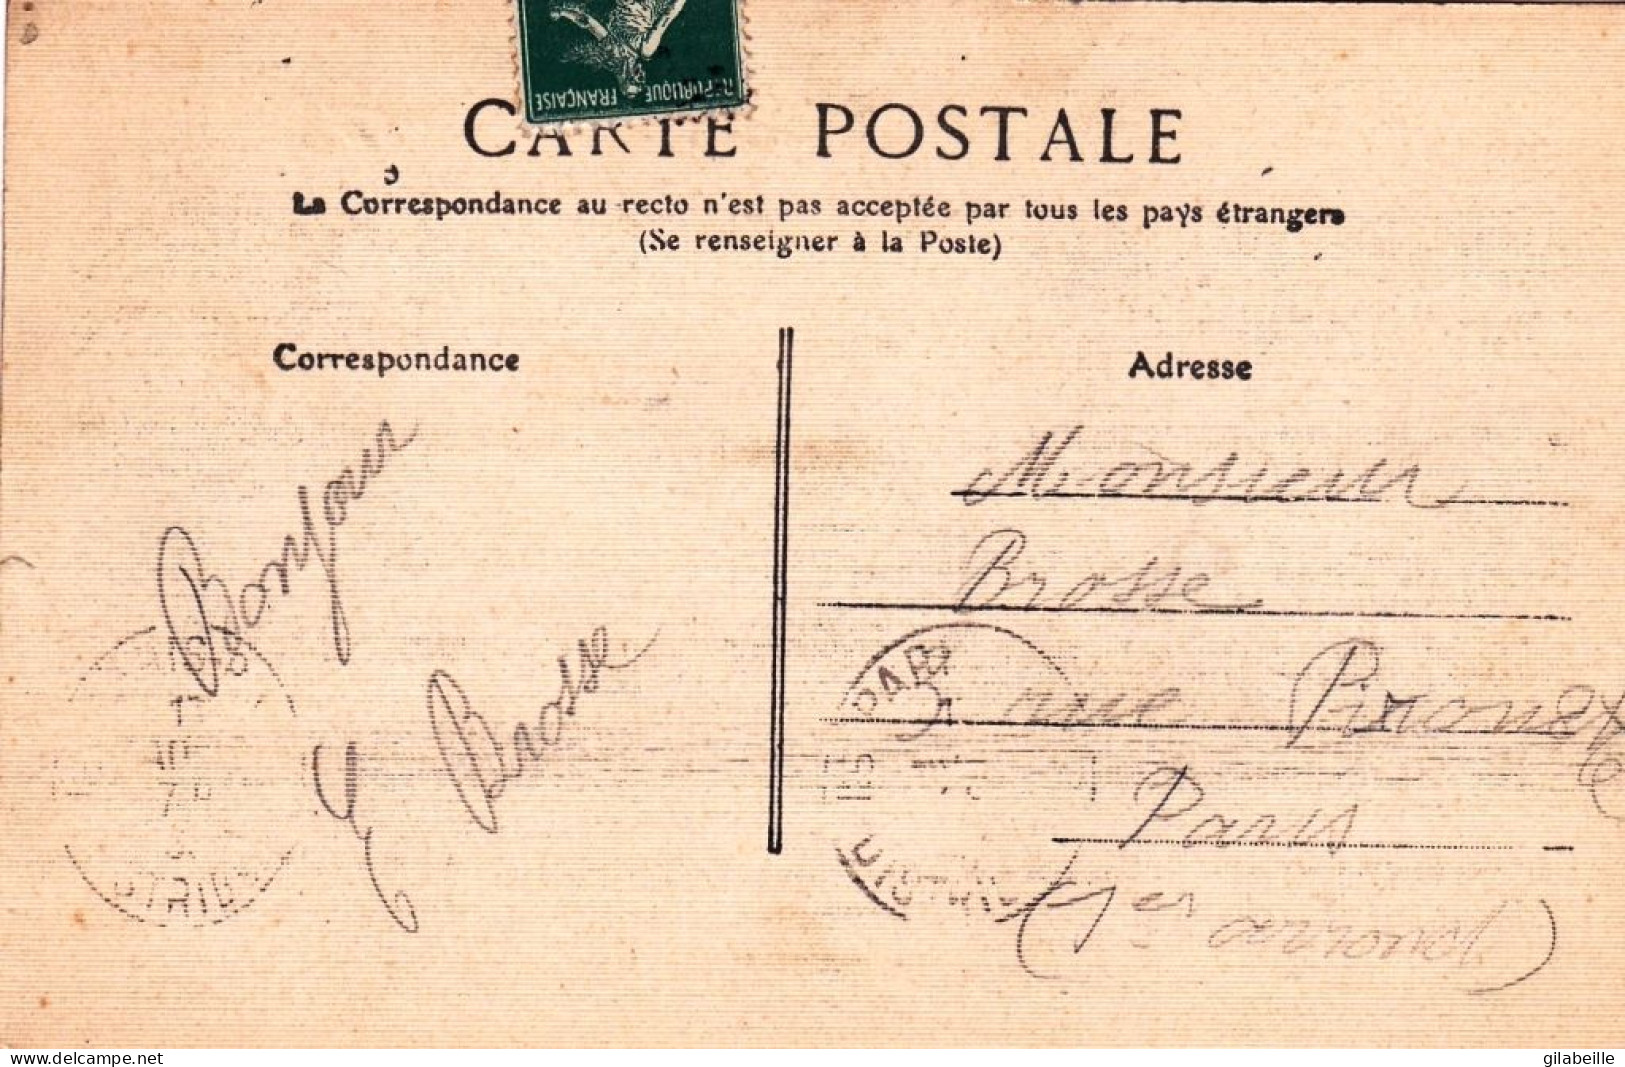 RÉPUBLIQUE FRANÇAISE
CARTE POSTALE
La Correspondance au recto n'est pas acceptée par tous les pays étrangers
(Se renseigner à la Poste)
Correspondance
Bonjour
E Brosse
Adresse
Monsieur
Brosse
rue
Paris
(1er arrond.)
PARIS
DISTRIB
DISTRIB
delcampe.net
gilabeille